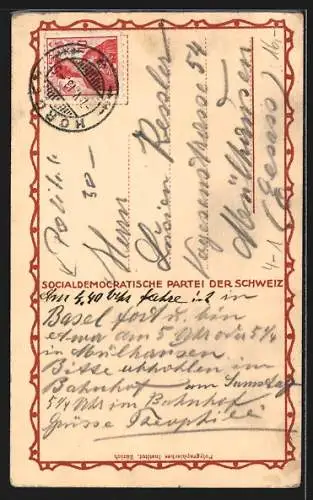 Politik
30 —
16.-
Herrn
Lucien Kessler
Vogesenstrasse 54
Mülhausen
(Elsass)
4-1
SOCIALDEMOCRATISCHE PARTEI DER SCHWEIZ
Um 4.40 Uhr fahre in
Basel fort u. bin
etwa um 5 Uhr oder 5¼
in Mülhausen
Bitte abholen im
Bahnhof am Samstag
5¼ Uhr im Bahnhof
Grüsse Theophil
Polygraphisches Institut, Zürich